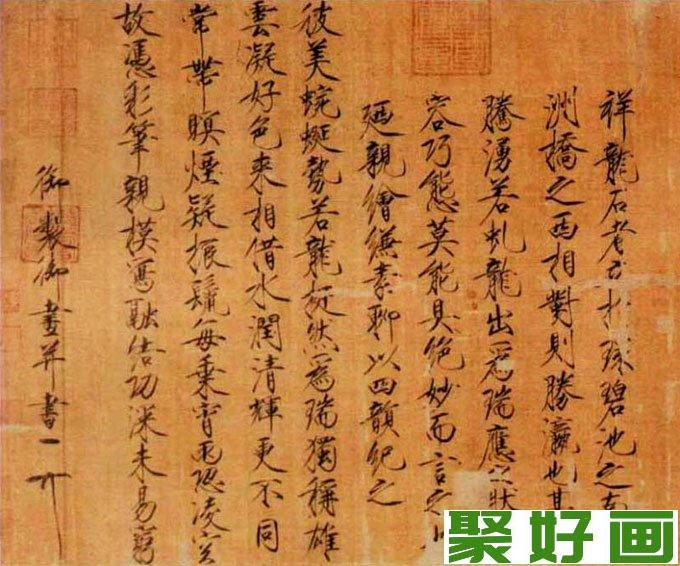 祥龍石者立於環碧池之南
洲橋之西相對則勝瀛也其
騰湧若虬龍出爲瑞應之狀
容巧態莫能具絶妙而言之也
廼親繪縑素聊以四韻紀之
彼美蜿蜒勢若龍挺然爲瑞獨稱雄
雲凝好色來相借水潤清輝更不同
常帶暝煙疑振鬣每乘宵雨恐凌空
故憑彩筆親模寫融結功深未易窮
御製御畫并書
聚好画